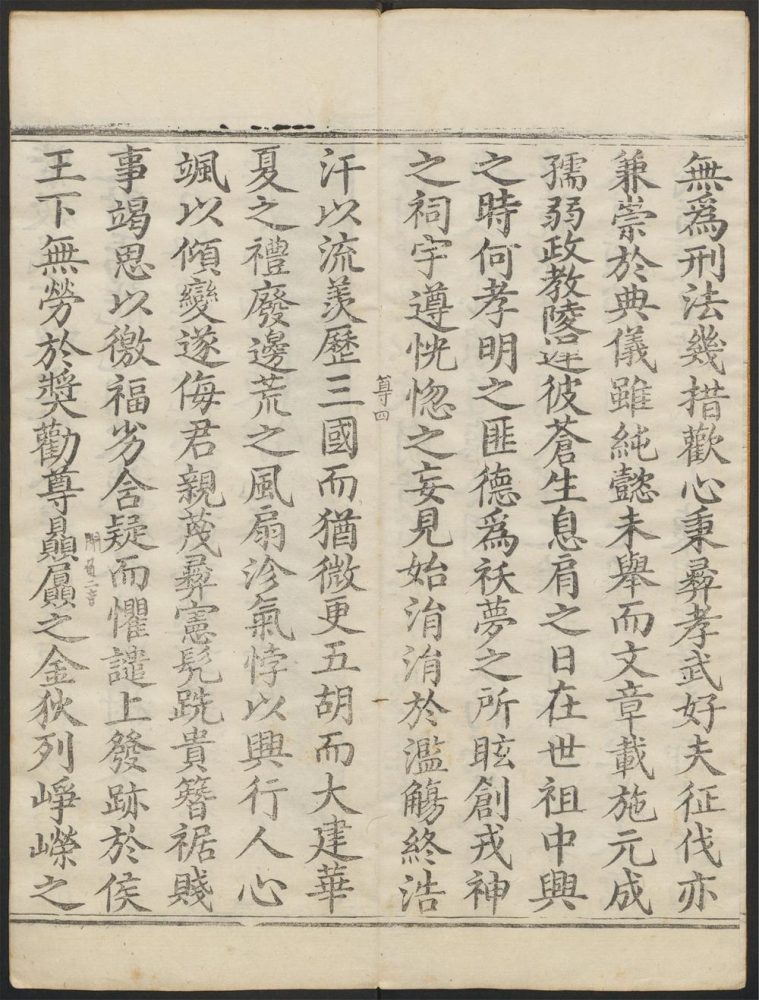 無爲刑法幾措歡心秉彝孝武好夫征伐亦
兼崇於典儀雖純懿未舉而文章載施元成
孺弱政教陵遲彼蒼生息肩之日在世祖中興
之時何孝明之匪德爲袄夢之所眩創戎神
之祠宇遵恍惚之妄見始涓涓於濫觴終浩
尊四
汗以流羡歷三國而猶微更五胡而大建華
夏之禮廢邊荒之風扇沴氣悖以興行人心
颯以傾變遂侮君親蔑彝憲髠跣貴簪裾賤
事竭思以徼福劣含疑而懼譴上發跡於侯
王下無勞於奬勸尊贔屭之金狄列崢嶸之